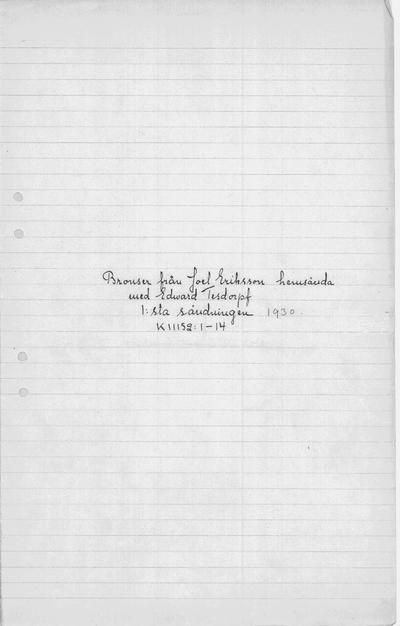 Bronser från Joel Eriksson hemsända
med Edward Tesdorpf
1:sta sändningen 1930.
K11152:1-14